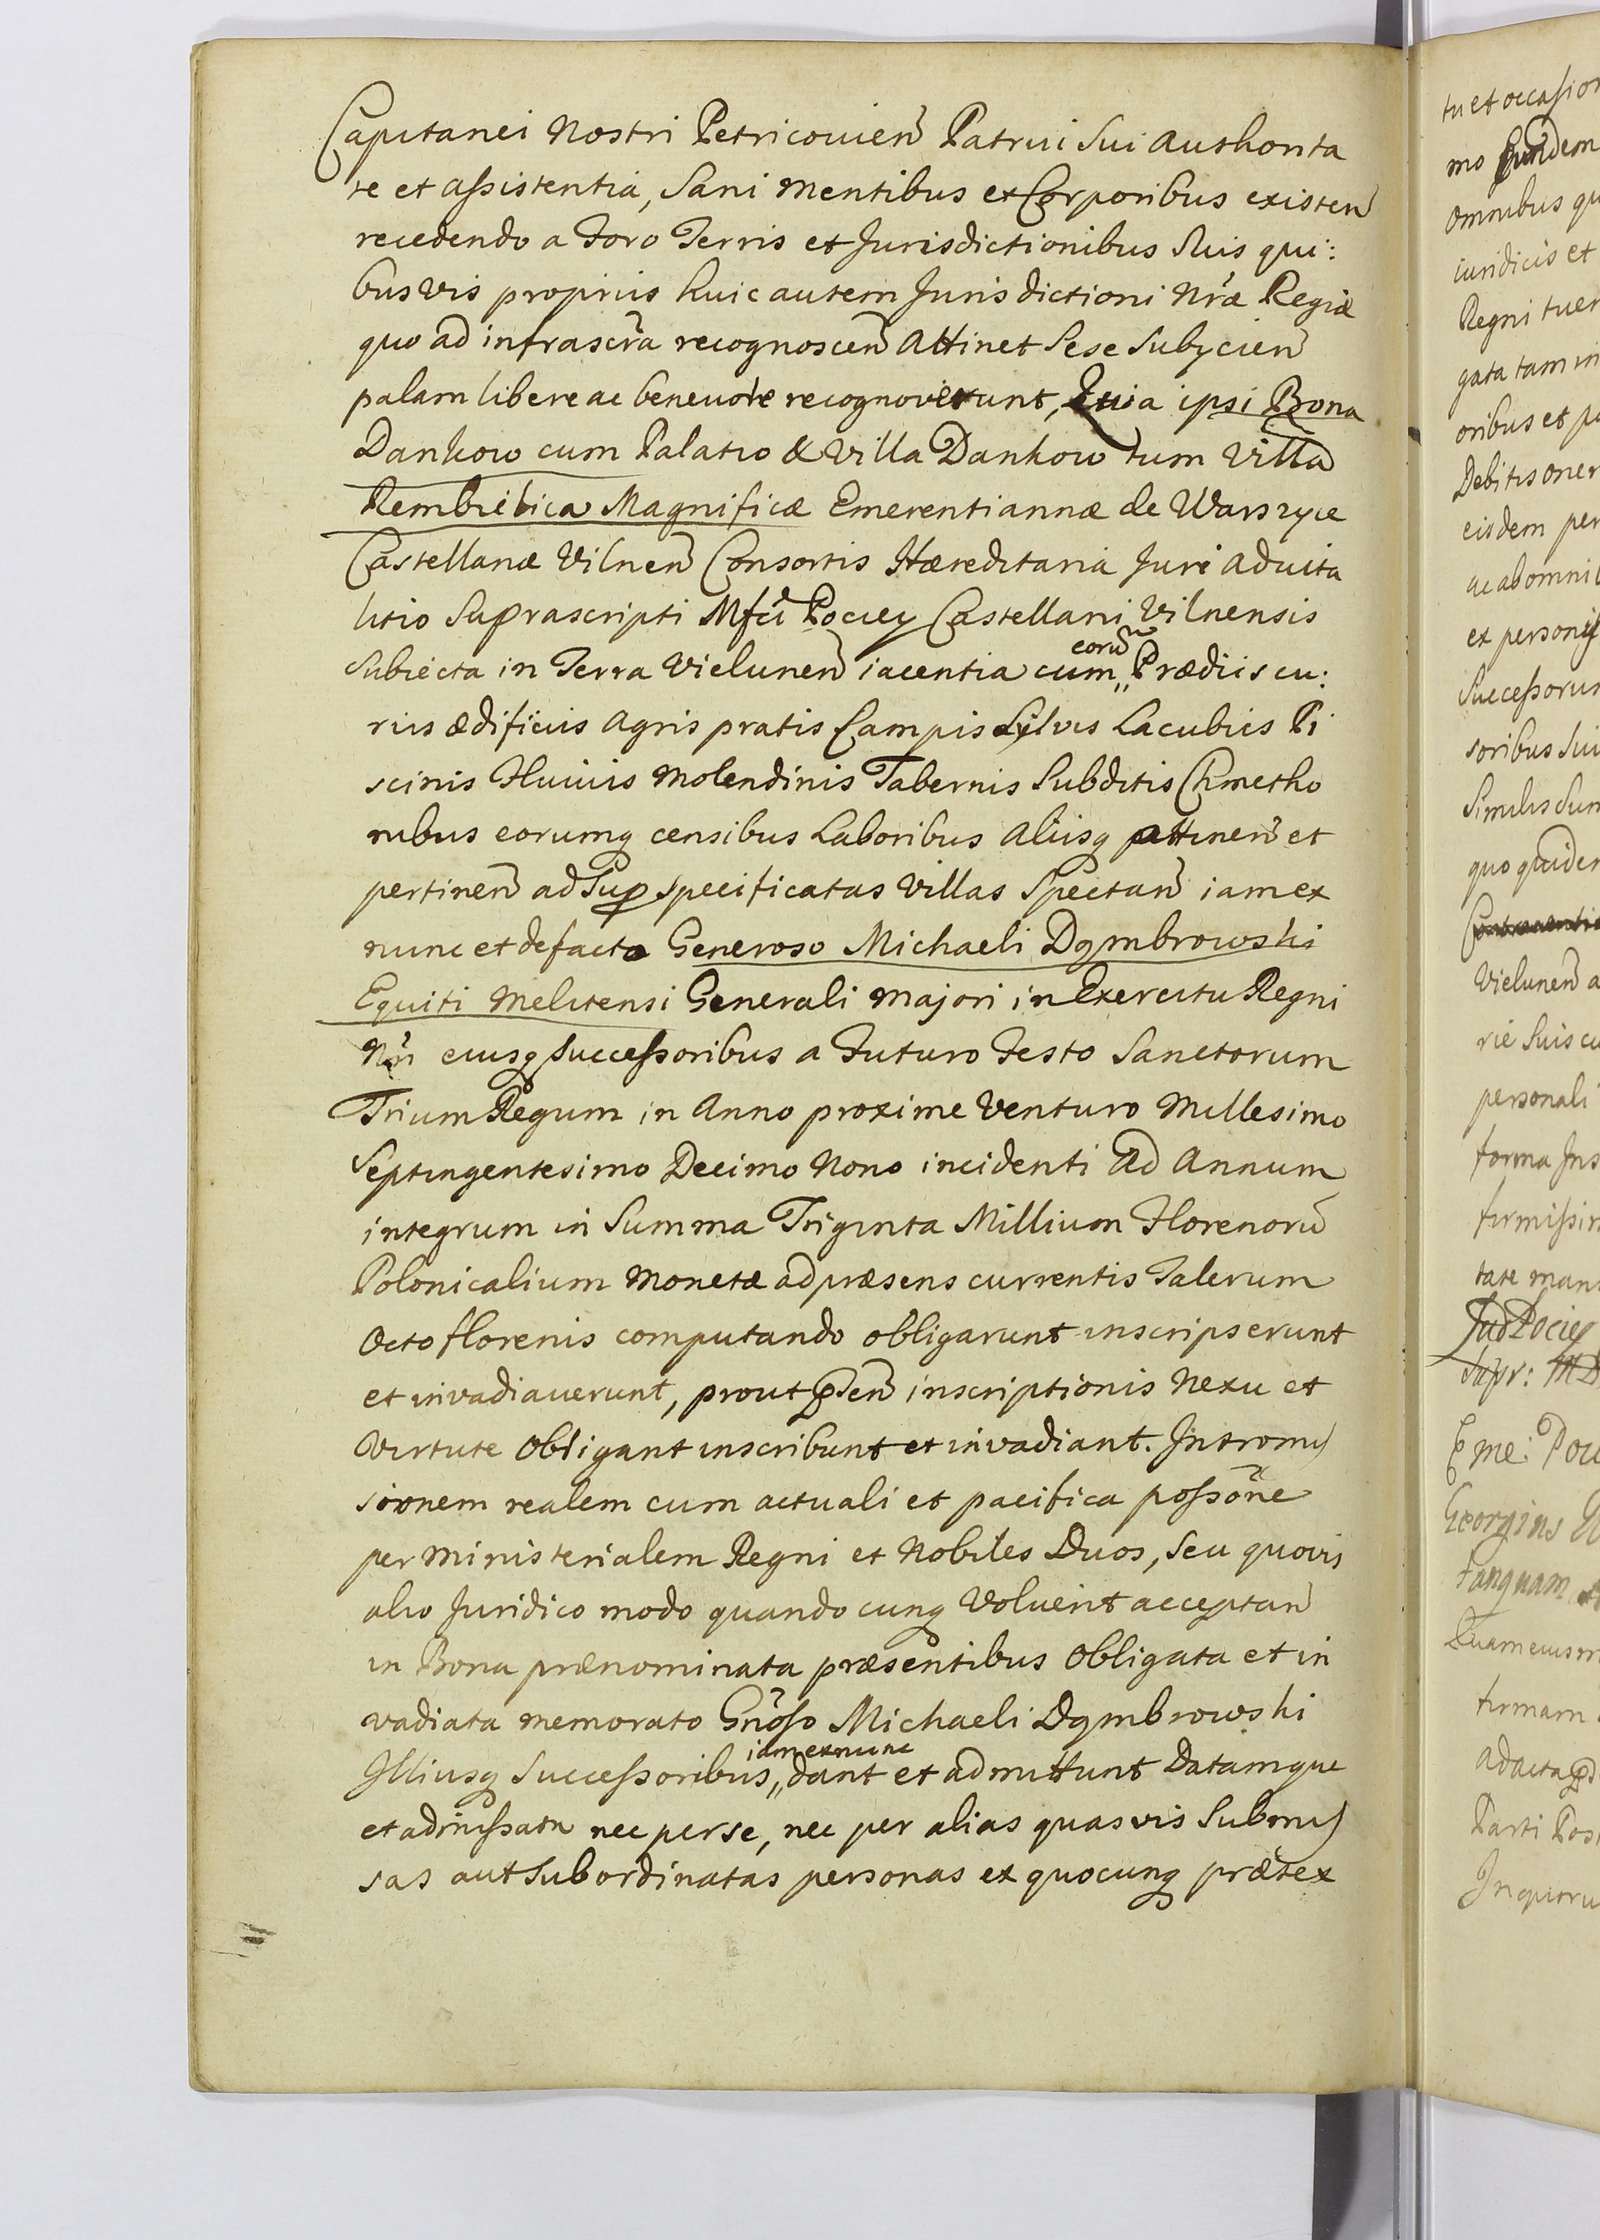 Capitanei Nostri Petricovien̄ Patrui Sui Authorita
te et assistentia, Sani Mentibus et Corporibus existen̄
recedendo a Foro Terris et Jurisdictionibus Suis qui:
busvis propriis huic autem Jurisdictioni Nr̄æ Regiæ
quo ad infrascr̄a recognoscen̄ Attinet Sese Subycien̄
palam libere ac benevole recognoverunt, Quia ipsi Bona
Dankow cum Palatio & Villa Dankow tum Villa
Rembielica Magnificæ Emerentiannæ de Warszyce
Castellanæ Vilnen̄ Consortis Hæreditaria Jure Advita
litio Suprascripti Mfci Pociey Castellani Vilnensis
Subiecta in Terra Vielunen̄ iacentia cum,, eorū Prædiis cu:
riis ædificiis Agris pratis Campis Sylvis Lacubus Pi
scinis Fluviis Molendinis Tabernis Subditis Cmetho
nibus eorumq censibus Laboribus Aliisq attinen̄ et
pertinen̄ ad Sup specificatas Villas Spectan̄ iam ex
nunc et de facto Generoso Michaeli Dąmbrowski
Equiti Melitensi Generali Majori in Exercitu Regni
Nr̄i eiusq Successoribus a Futuro Festo Sanctorum
Trium Regum in Anno proxime Venturo Millesimo
Septingentesimo Decimo Nono incidenti Ad Annum
integrum in Summa Triginta Millium Florenorū
Polonicalium Monetæ ad præsens currentis Talerum
Octo florenis computando obligarunt inscripserunt
et invadiaverunt, prout p̄sen̄ inscriptionis Nexu et
Virtute Obligant inscribunt et invadiant. Intromis
sionem realem cum actuali et pacifica possōne
per Ministerialem Regni et Nobiles Duos, Seu quovis
alio Juridico modo quando cunq Voluerit acceptan̄
in Bona prænominata præsentibus Obligata et in
vadiata memorato Gn̄oso Michaeli Dąmbrowski
Illiusq Successoribus,, iam ex nunc dant et admittunt Datamque
et admissam nec per se, nec per alias quasvis Submis
sas aut Subordinatas personas ex quocunq prætex
tu et occasion
mo
omnibus qu
iuridicis et
Regni tuer
gata tam in
oribus et
Debitis oner
eisdem per
ac ab omnib
et personis
Successorum
soribus Sui
Similis Sum
quo quidem
Vielunen̄ a
rie Suis cu
personali
forma Ins
firmissim
tate man
Pociey
Supr:
Eme: Poci
Georgius
tanquam
Quam eius m
firmam
Ad acta
Parti Pos
In quoru